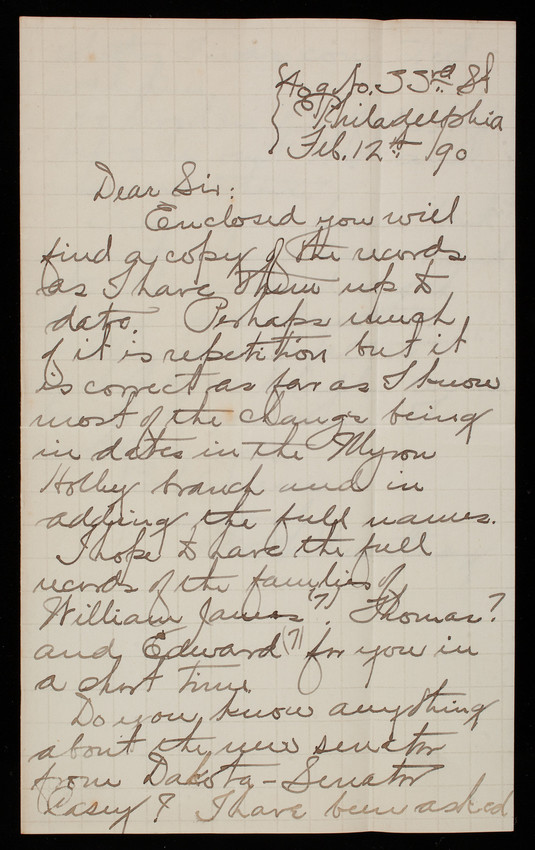 No. 33rd St
Philadelphia
Feb. 12th /90
Dear Sir:
Enclosed you will
find a copy of the records
as I have them up to
date. Perhaps much
of it is repetition but it
is correct as far as I know
most of the changes being
in dates in the Myron
Holley branch and in
adding the full names.
I hope to have the full
records of the families of
William James(7), Thomas7
and Edward(7) for you in
a short time.
Do you know anything
about the new senator
from Dakota - Senator
Casey? I have been asked